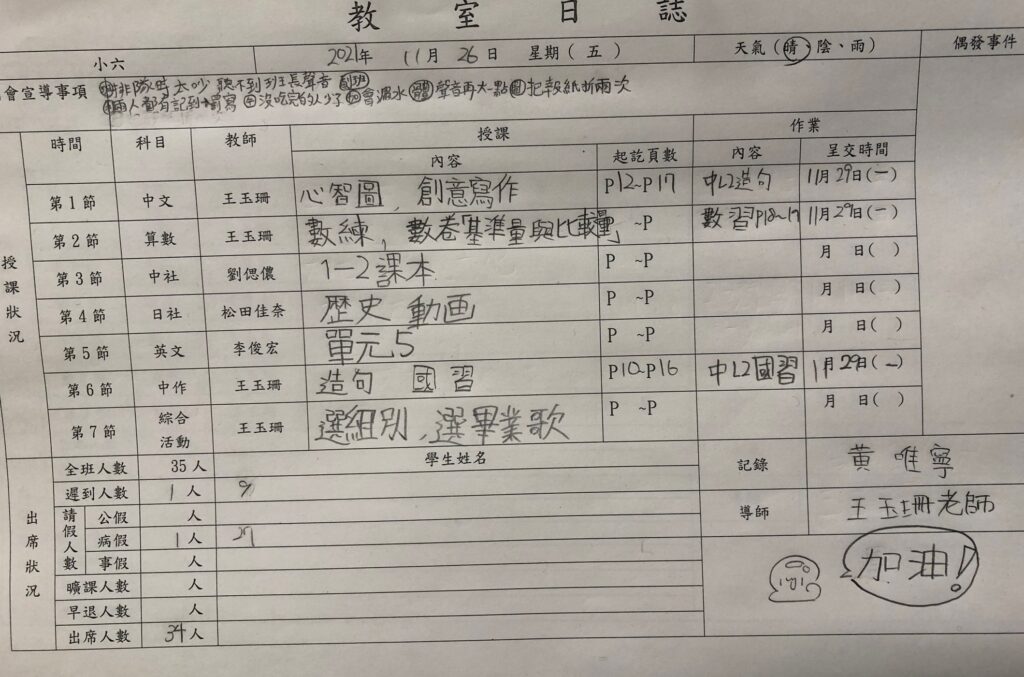 教室日誌
小六 2021年 11月 26日 星期(五) 天氣(晴、陰、雨) 偶發事件
會宣導事項 排隊時太吵聽不到班長聲音 副班
兩人都有記到 沒吃完的人少了 會漏水 聲音再大一點 把報紙折兩次
授課狀況 時間 科目 教師 授課 作業
內容 起訖頁數 內容 呈交時間
第1節 中文 王玉珊 心智圖,創意寫作 P12~P17 中L2造句 11月29日(一)
第2節 算數 王玉珊 數練,數卷「基準量與比較量」 ~P 數習P18~19 11月29日(一)
第3節 中社 劉偲儂 1-2課本 P ~P 月 日( )
第4節 日社 松田佳奈 歷史 動画 P ~P 月 日( )
第5節 英文 李俊宏 單元5 P ~P 月 日( )
第6節 中作 王玉珊 造句 國習 P10~P16 中L2國習 1月29日(一)
第7節 綜合活動 王玉珊 選組別,選畢業歌 P ~P 月 日( )
出席狀況 全班人數 35人 學生姓名 記錄 黃唯寧
遲到人數 1人 9
請假人數 公假 人 導師 王玉珊老師
病假 1人 27
事假 人
曠課人數 人 加油!
早退人數 人
出席人數 34人